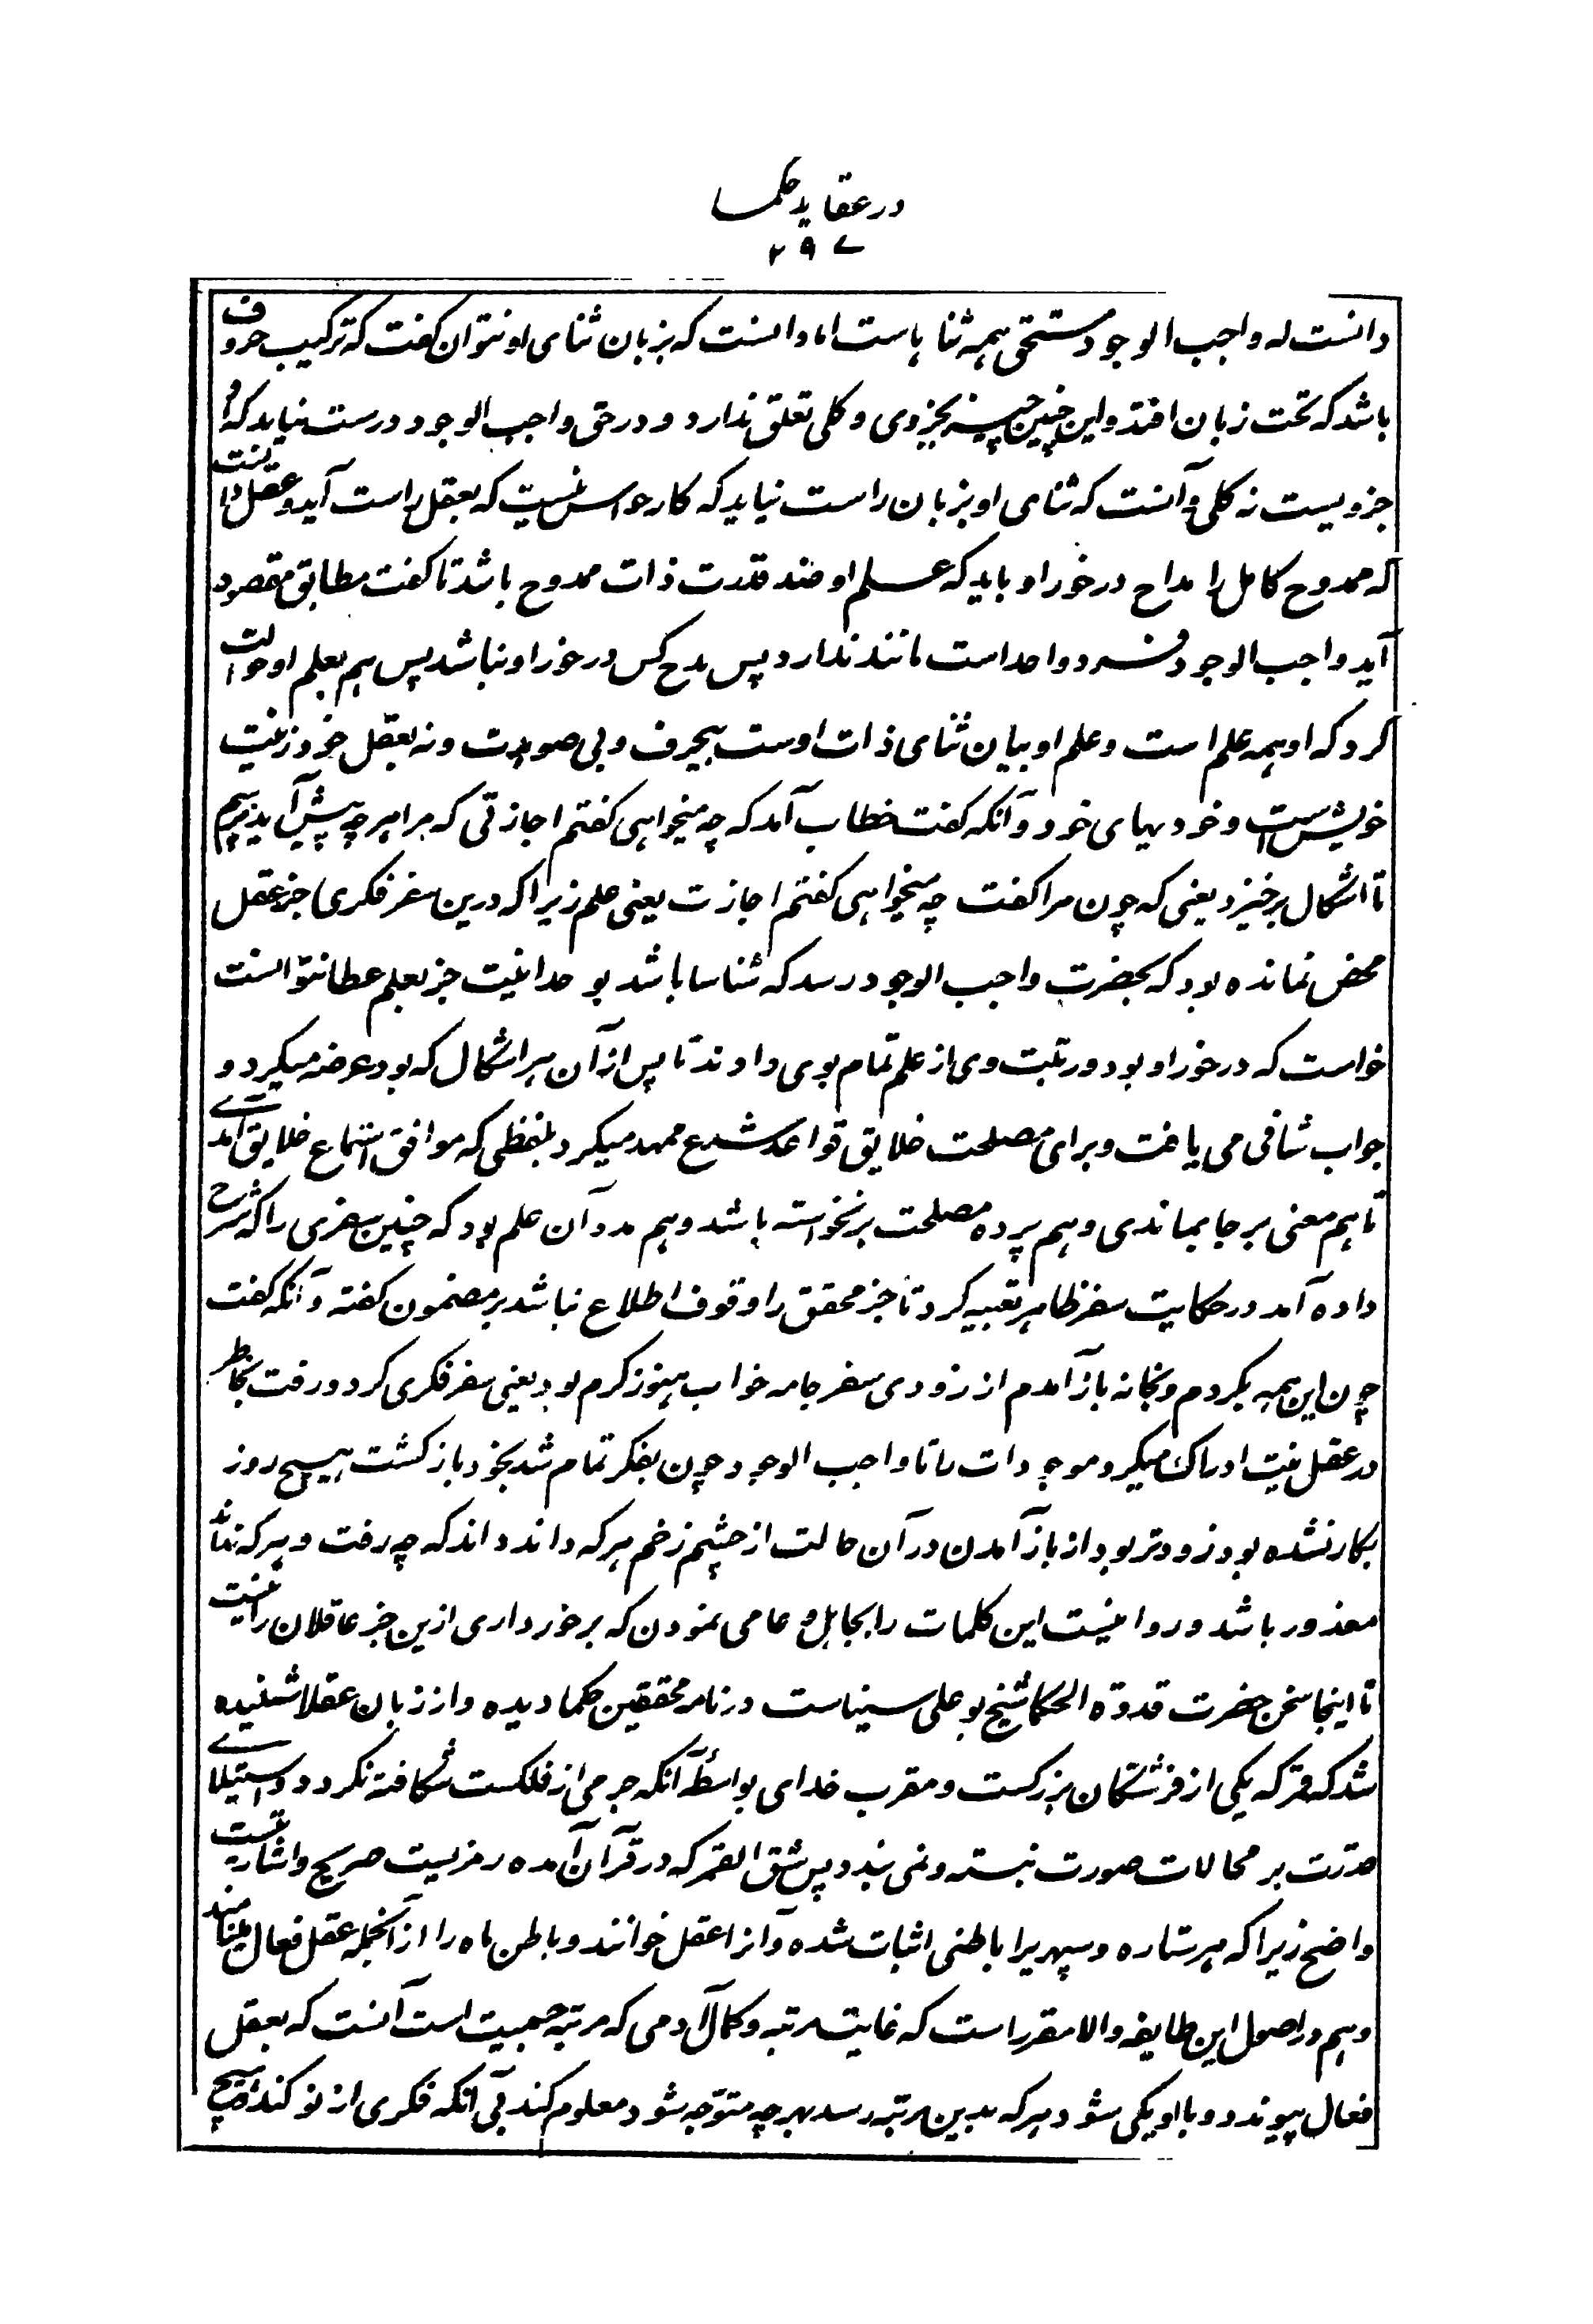 در عقاید حکما
۲۹۷
دانست که واجب الوجود مستحق همه ثنا هاست اما دانست که بزبان ثنای او نتوان گفت که ترکیب حروف
باشد که تحت زبان افتد و این چنین چیز بجزوی و کلی تعلق ندارد و در حق واجب الوجود درست نیاید که او
جزویست نه کلی و آنست که ثنای او بزبان راست نیاید که کار حواس نیست که بعقل راست آید و عقل دانست
که ممدوح کامل را مداح در خور او باید که علم او ضد قدرت ذات ممدوح باشد تا گفت مطابق مقصود
آید واجب الوجود فرد و احد است مانند ندارد پس مدح کس در خور او نباشد پس هم بعلم او حوالت
کرد که او همه علم است و علم او بیان ثنای ذات اوست بیحرف و بی صوت و نه بعقل خود زینت
خویش است و خود بهای خود و آنکه گفت خطاب آمد که چه میخواهی گفتم اجازتی که مرا هر چه پیش آید بپرسم
تا اشکال برخیزد یعنی که چون مرا گفت چه میخواهی گفتم اجازت یعنی علم زیرا که درین سفر فکری جز عقل
محض نمانده بود که بحضرت واجب الوجود رسد که شناسا باشد بوحدانیت جز بعلم عطا نتوانست
خواست که در خور او بود و رتبت وی از علم تمام بوی دادند تا پس از آن هر اشکال که بود عرضه میکرد و
جواب شافی می یافت و برای مصلحت خلایق قواعد شرع ممهد میکرد بلفظی که موافق استماع خلایق آمدی
تا هم معنی بر جا بماندی و هم پرده مصلحت برنخواسته باشد و هم مدد آن علم بود که چنین سفری را که شرح
داده آمد در حکایت سفر ظاهر تعبیه کرد تا جز محقق را وقوف اطلاع نباشد بر مضمون گفته و آنکه گفت
چون این همه بکردم و بخانه باز آمدم از زودی سفر جامه خواب هنوز گرم بود یعنی سفر فکری کرد و رفت بخاطر
در عقل نیت ادراک میکرد موجودات را تا واجب الوجود چون بفکر تمام شد بخود باز گشت هیچ روز
بکار نشده بود زودتر بود از باز آمدن در آن حالت از چشم زخم هر که داند داند که چه رفت و هر که نداند
معذور باشد و روا نیست این کلمات را بجاهل و عامی نمودن که برخورداری ازین جز عاقلان را نیست
تا اینجا سخن حضرت قدوة الحکما شیخ بو علی سیناست در نامه محققین حکما دیده و از زبان عقلا شنیده
شد که قمر که یکی از فرشتگان بزرگست و مقرب خدای بواسطه آنکه جرمی از فلکست شکافته نگردد و استیلای
قدرت بر محالات صورت نبسته و نمی بندد پس شق القمر که در قرآن آمده رمزیست صریح و اشارتیست
واضح زیرا که هر ستاره و سپهر را باطنی اثبات شده و آنرا عقل خوانند و باطن ماه را از آنجمله عقل فعال مینامند
و هم در اصول این طایفه والا مقرر است که غایت مرتبه و کمال آدمی که مرتبه جمعیت است آنست که بعقل
فعال پیوندد و با او یکی شود هر که بدین مرتبه رسد بهر چه متوجه شود معلوم کند بی آنکه فکری از نو کند